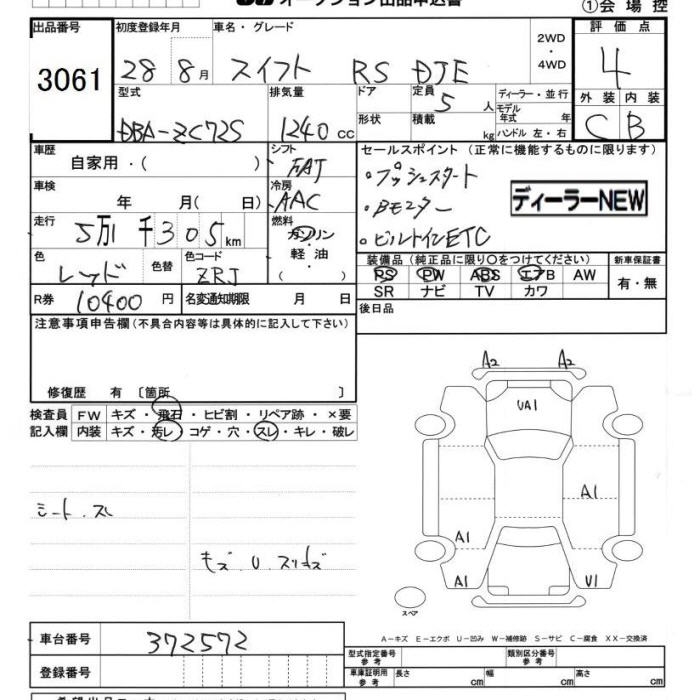 オークション出品申込書
①会場控
出品番号 初度登録年月 車名・グレード 2WD・4WD 評価点
3061 28 8月 スイフト RS DJE 4
型式 排気量 ドア 定員 ディーラー・並行
DBA-ZC72S 1240cc 形状 5人 積載 kg モデル年式 年 ハンドル 左・右
外装 内装
C B
車歴 自家用・( ) シフト FAT
セールスポイント(正常に機能するものに限ります)
車検 年 月( 日) 冷房 AAC
・プッシュスタート
・Bモニター
・ビルトインETC
ディーラーNEW
走行 5万1千305km 燃料 ガソリン・軽油・( )
色 レッド 色替 色コード ZRJ
装備品(純正品に限り○をつけてください) 新車保証書
RS PW ABS エアB AW 有・無
SR ナビ TV カワ
R券 10400円 名変通知期限 月 日
後日品
注意事項申告欄(不具合内容等は具体的に記入して下さい)
修復歴 有〔箇所 〕
検査員記入欄
FW キズ・飛石・ヒビ割・リペア跡・×要
内装 キズ・汚レ・コゲ・穴・スレ・キレ・破レ
シート.スレ
キズ.U.スリキズ
A2 A2
UA1
A1
A1
A1 U1
スペア
A-キズ E-エクボ U-凹み W-補修跡 S-サビ C-腐食 XX-交換済
車台番号 372572
型式指定番号 参考 類別区分番号 参考
登録番号
車庫証明用 参考 長さ cm 幅 cm 高さ cm